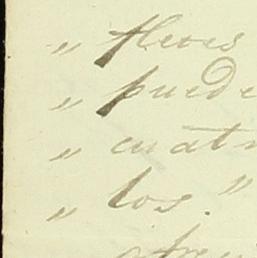 „ fleres
„ puede
„ cuatr
„ los."